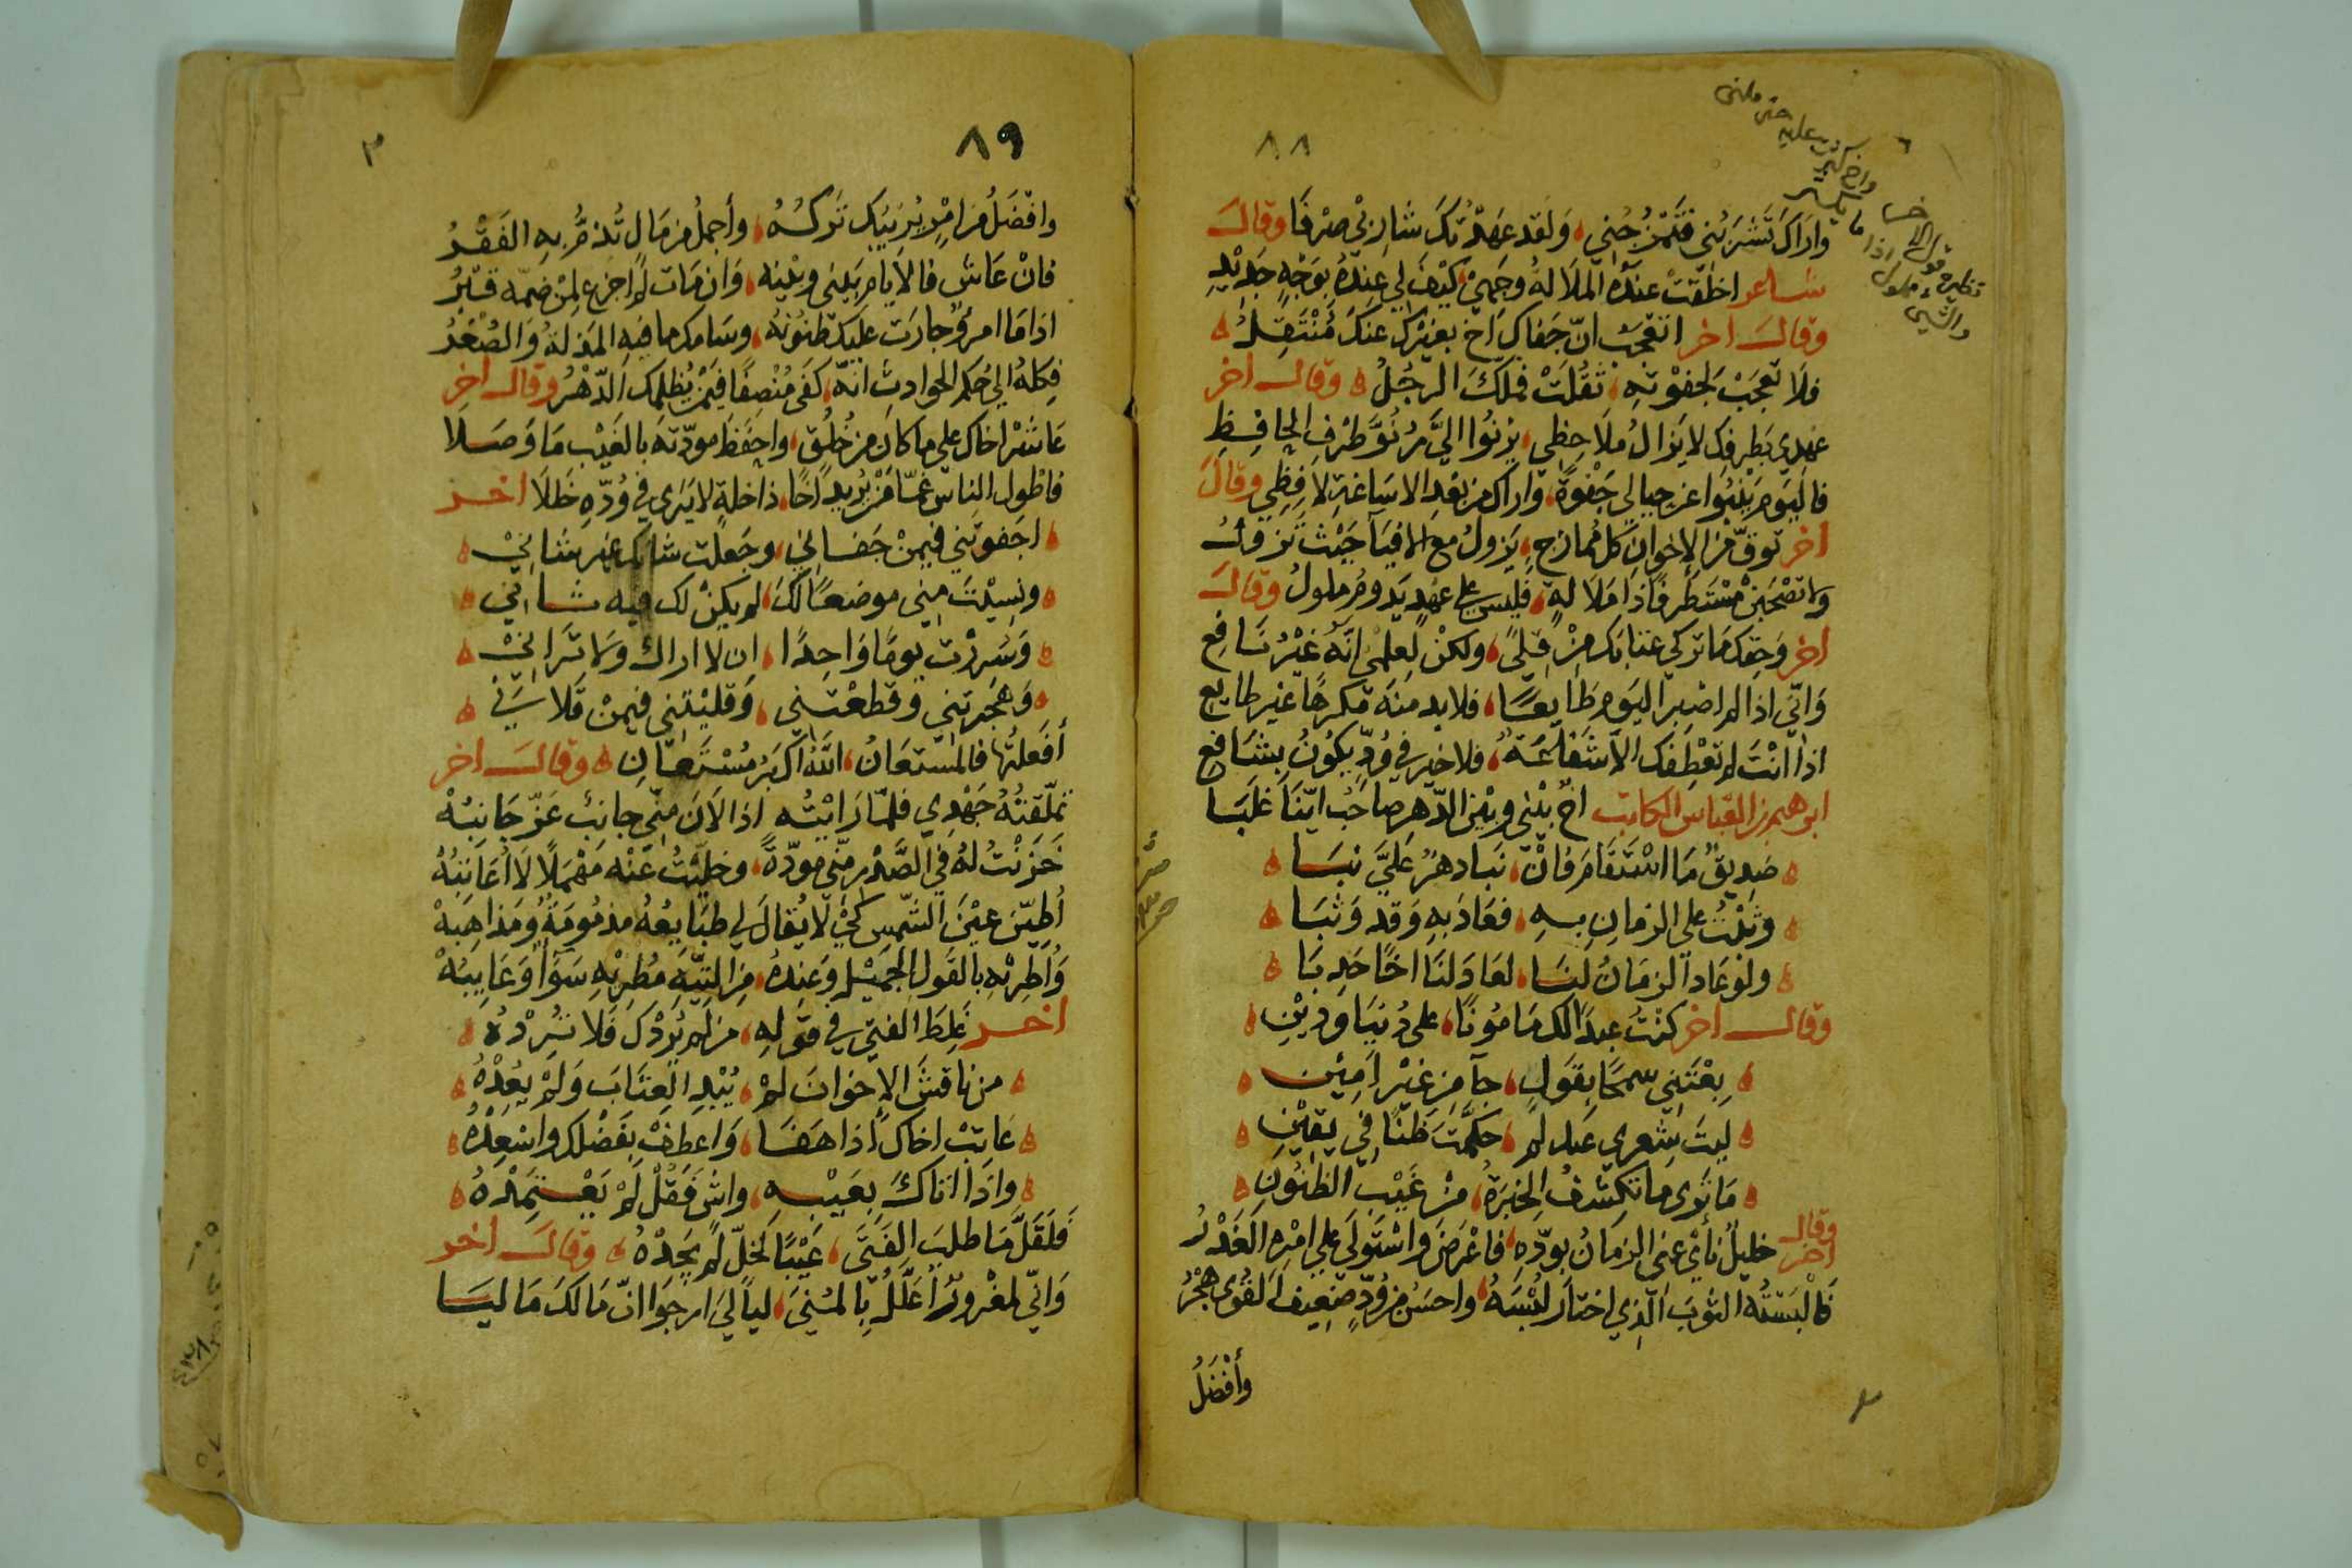 ٨٨
واراك تشربني فتمزجني ولقد عهدتك شاربي صرفا وقال
شاعر اخلقت عنده الملالة وجهي كيف لي عنده بوجه جديد
وقال اخر اتعجب ان جفاك اخ بغيرك عنك منتقل
فلا تعجب لجفوته ثقلت فملك الرجل وقال اخر
عهدي بطرفك لا يزال ملاحظي يرنوا اليّ رنوّ طرف الحافظ
فاليوم ينبوا عن حيالي جفوة واراك من بعد الاساغة لافظي وقال
اخر توقّ من الإخوان كل ممازج يزول مع الافيآ حيث تزول
ولا تصحبن مستطرفا ذا ملالة فليس على عهد يدوم ملول وقال
اخر وحقك ما تركي عتابك من قلىً ولكن لعلمي انه غير نافع
وانّي اذا لم اصبر اليوم طايعا فلا بد منه مكرها غير طايع
اذا انت لم تعطفك الا شفاعة فلا خير في ودّ يكون بشافع
ابرهيم بن العباس الكاتب اخ بيني وبين الدهر صاحب اينا غلبا
صديق ما استقام فان نبا دهر عليّ نبا
وثبت على الزمان به فعاد به وقد وثبا
ولو عاد الزمان لنا لعاد لنا اخا حدبا
وقال اخر كنت عبدا لك مامونا على دنيا ودين
بعتني سمحا بقول جآ من غير امين
ليت شعري عنك لم حكّمت ظنا في يقين
ما ترى ما تكشف الخبرة من غيب الظنون
وقال اخر خليل نأى عني الزمان بودّه فاعرض واستولى على امره الغدر
فالبسته الثوب الذي اختار لبسه واحسن من ودّ ضعيف القوى هجر
وأفضل
٨٩
وافضل من امر يريبك تركه وأجمل من مال تذمّ به الفقر
فان عاش فالايام بيني وبينه وان مات لم اجزع لمن ضمّه قبر
اذا ما امرؤ جارت عليك ظنونه وسامك ما فيه المذلة والصغر
فكله الى حكم الحوادث انه كفى منصفا فيمن يظلمك الدهر وقال اخر
عاشر اخاك على ما كان من خلق واحفظ مودّته بالغيب ما وصلا
فاطول الناس غمّا من يريد اخا ذا خلة لا يرى في ودّه خللا اخر
اجفوتني فيمن جفاني وجعلت شانك غير شاني
ونسيت مني موضعا لك لم يكن لك فيه ثاني
وسررت يوما واحدا ان لا اراك ولا تراني
وهجرتني وقطعتني وقليتني فيمن قلاني
أفعلتها فالمستعان الله اكبر مستعان وقال اخر
تملّقته جهدي فلما رايته اذا لان مني جانب عزّ جانبه
خزنت له في الصدر منّي مودّة وخلّيت عنه مهملا لا اعاتبه
أطيّن عين الشمس كي لا يقال لي طبايعه مذمومة ومذاهبه
واطريه بالقول الجميل وعنده من التيه مطريه سوآ وعايبه
اخر غلط الفتى في قوله من لم يردك فلا ترده
من ناقش الإخوان لم يبد العتاب ولم يعده
عاتب اخاك اذا هفا واعطف بفضلك واستعده
واذا اتاك بعيبه واش فقل لم يعتمده
فلقلّ ما طلب الفتى عيبا لخلّ لم يجده وقال اخر
وانّي لمغرور أعلّل بالمنى ليالي ارجوا انّ مالك ما ليا